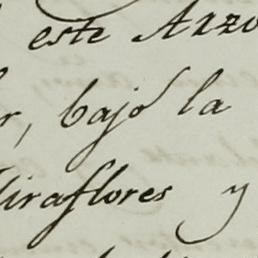 este Arzo
r, bajo la
Miraflores y